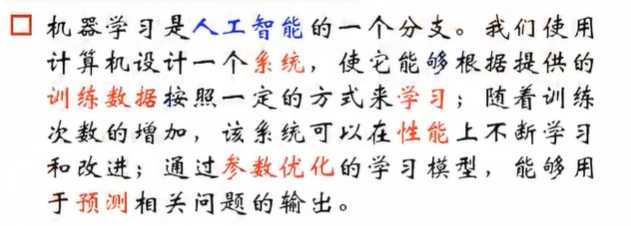 机器学习是人工智能的一个分支。我们使用
计算机设计一个系统，使它能够根据提供的
训练数据按照一定的方式来学习；随着训练
次数的增加，该系统可以在性能上不断学习
和改进；通过参数优化的学习模型，能够用
于预测相关问题的输出。